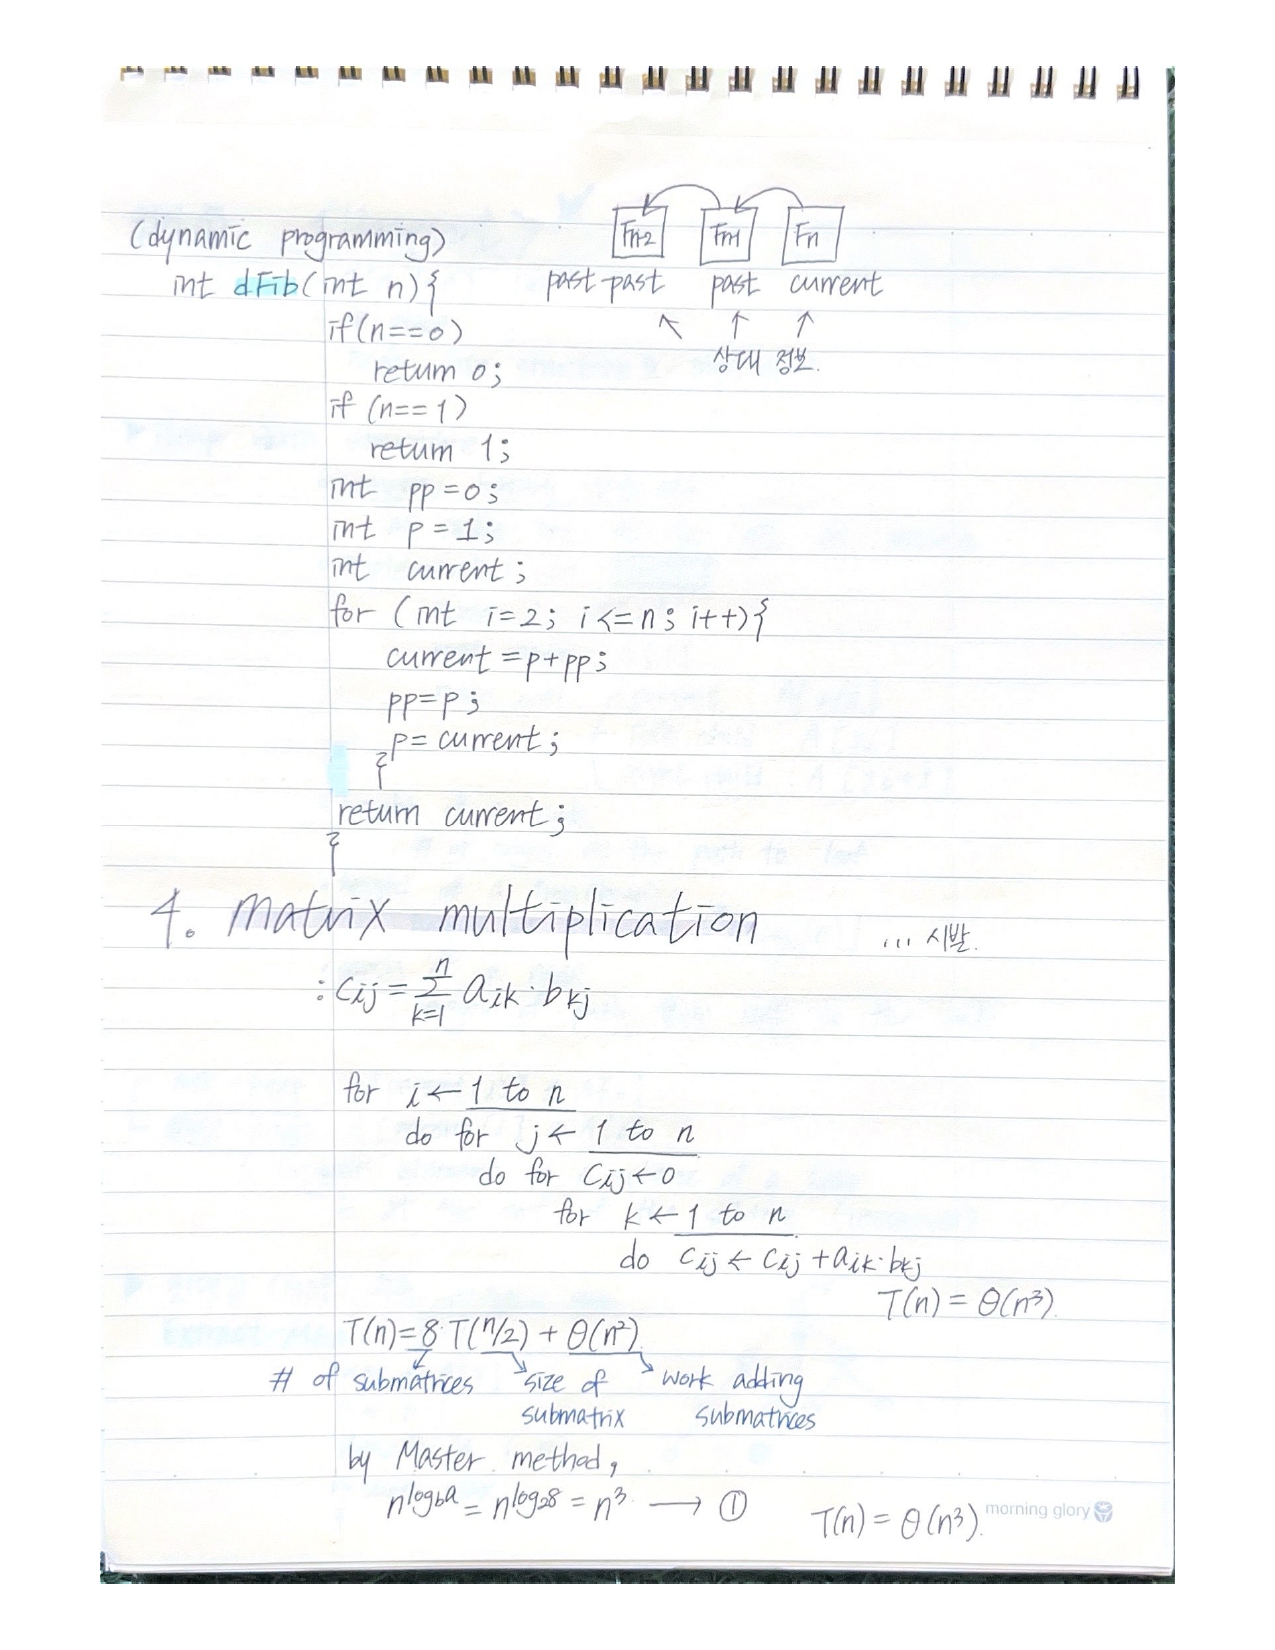 (dynamic programming)
Fn-2 Fn-1 Fn
int dFib(int n){
past-past past current
if(n==0)
상대 정보.
return 0;
if (n==1)
return 1;
int pp=0;
int p=1;
int current;
for (int i=2; i<=n; i++){
current=p+pp;
pp=p;
p=current;
}
return current;
}
4. matrix multiplication ... 시발.
: Cij = Σ aik·bkj
n
k=1
for i ← 1 to n
do for j ← 1 to n
do for Cij ← 0
for k ← 1 to n
do Cij ← Cij + aik·bkj
T(n) = θ(n³).
T(n) = 8·T(n/2) + θ(n²)
# of submatrices size of submatrix work adding submatrices
by Master method,
n^logba = n^log28 = n³ → ① T(n) = θ(n³).
morning glory